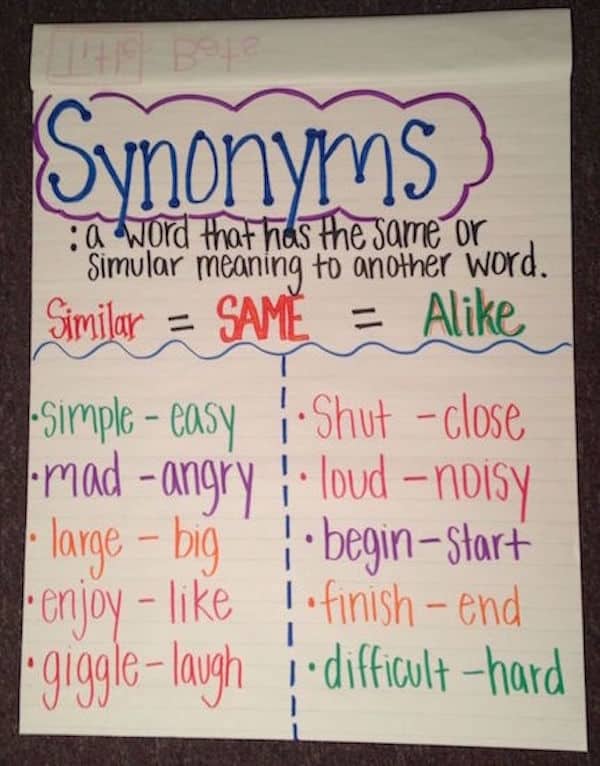 Title Bats
Synonyms
: a word that has the same or
simular meaning to another word.
Similar = SAME = Alike
• simple - easy
• mad - angry
• large - big
• enjoy - like
• giggle - laugh
• Shut - close
• loud - noisy
• begin - start
• finish - end
• difficult - hard